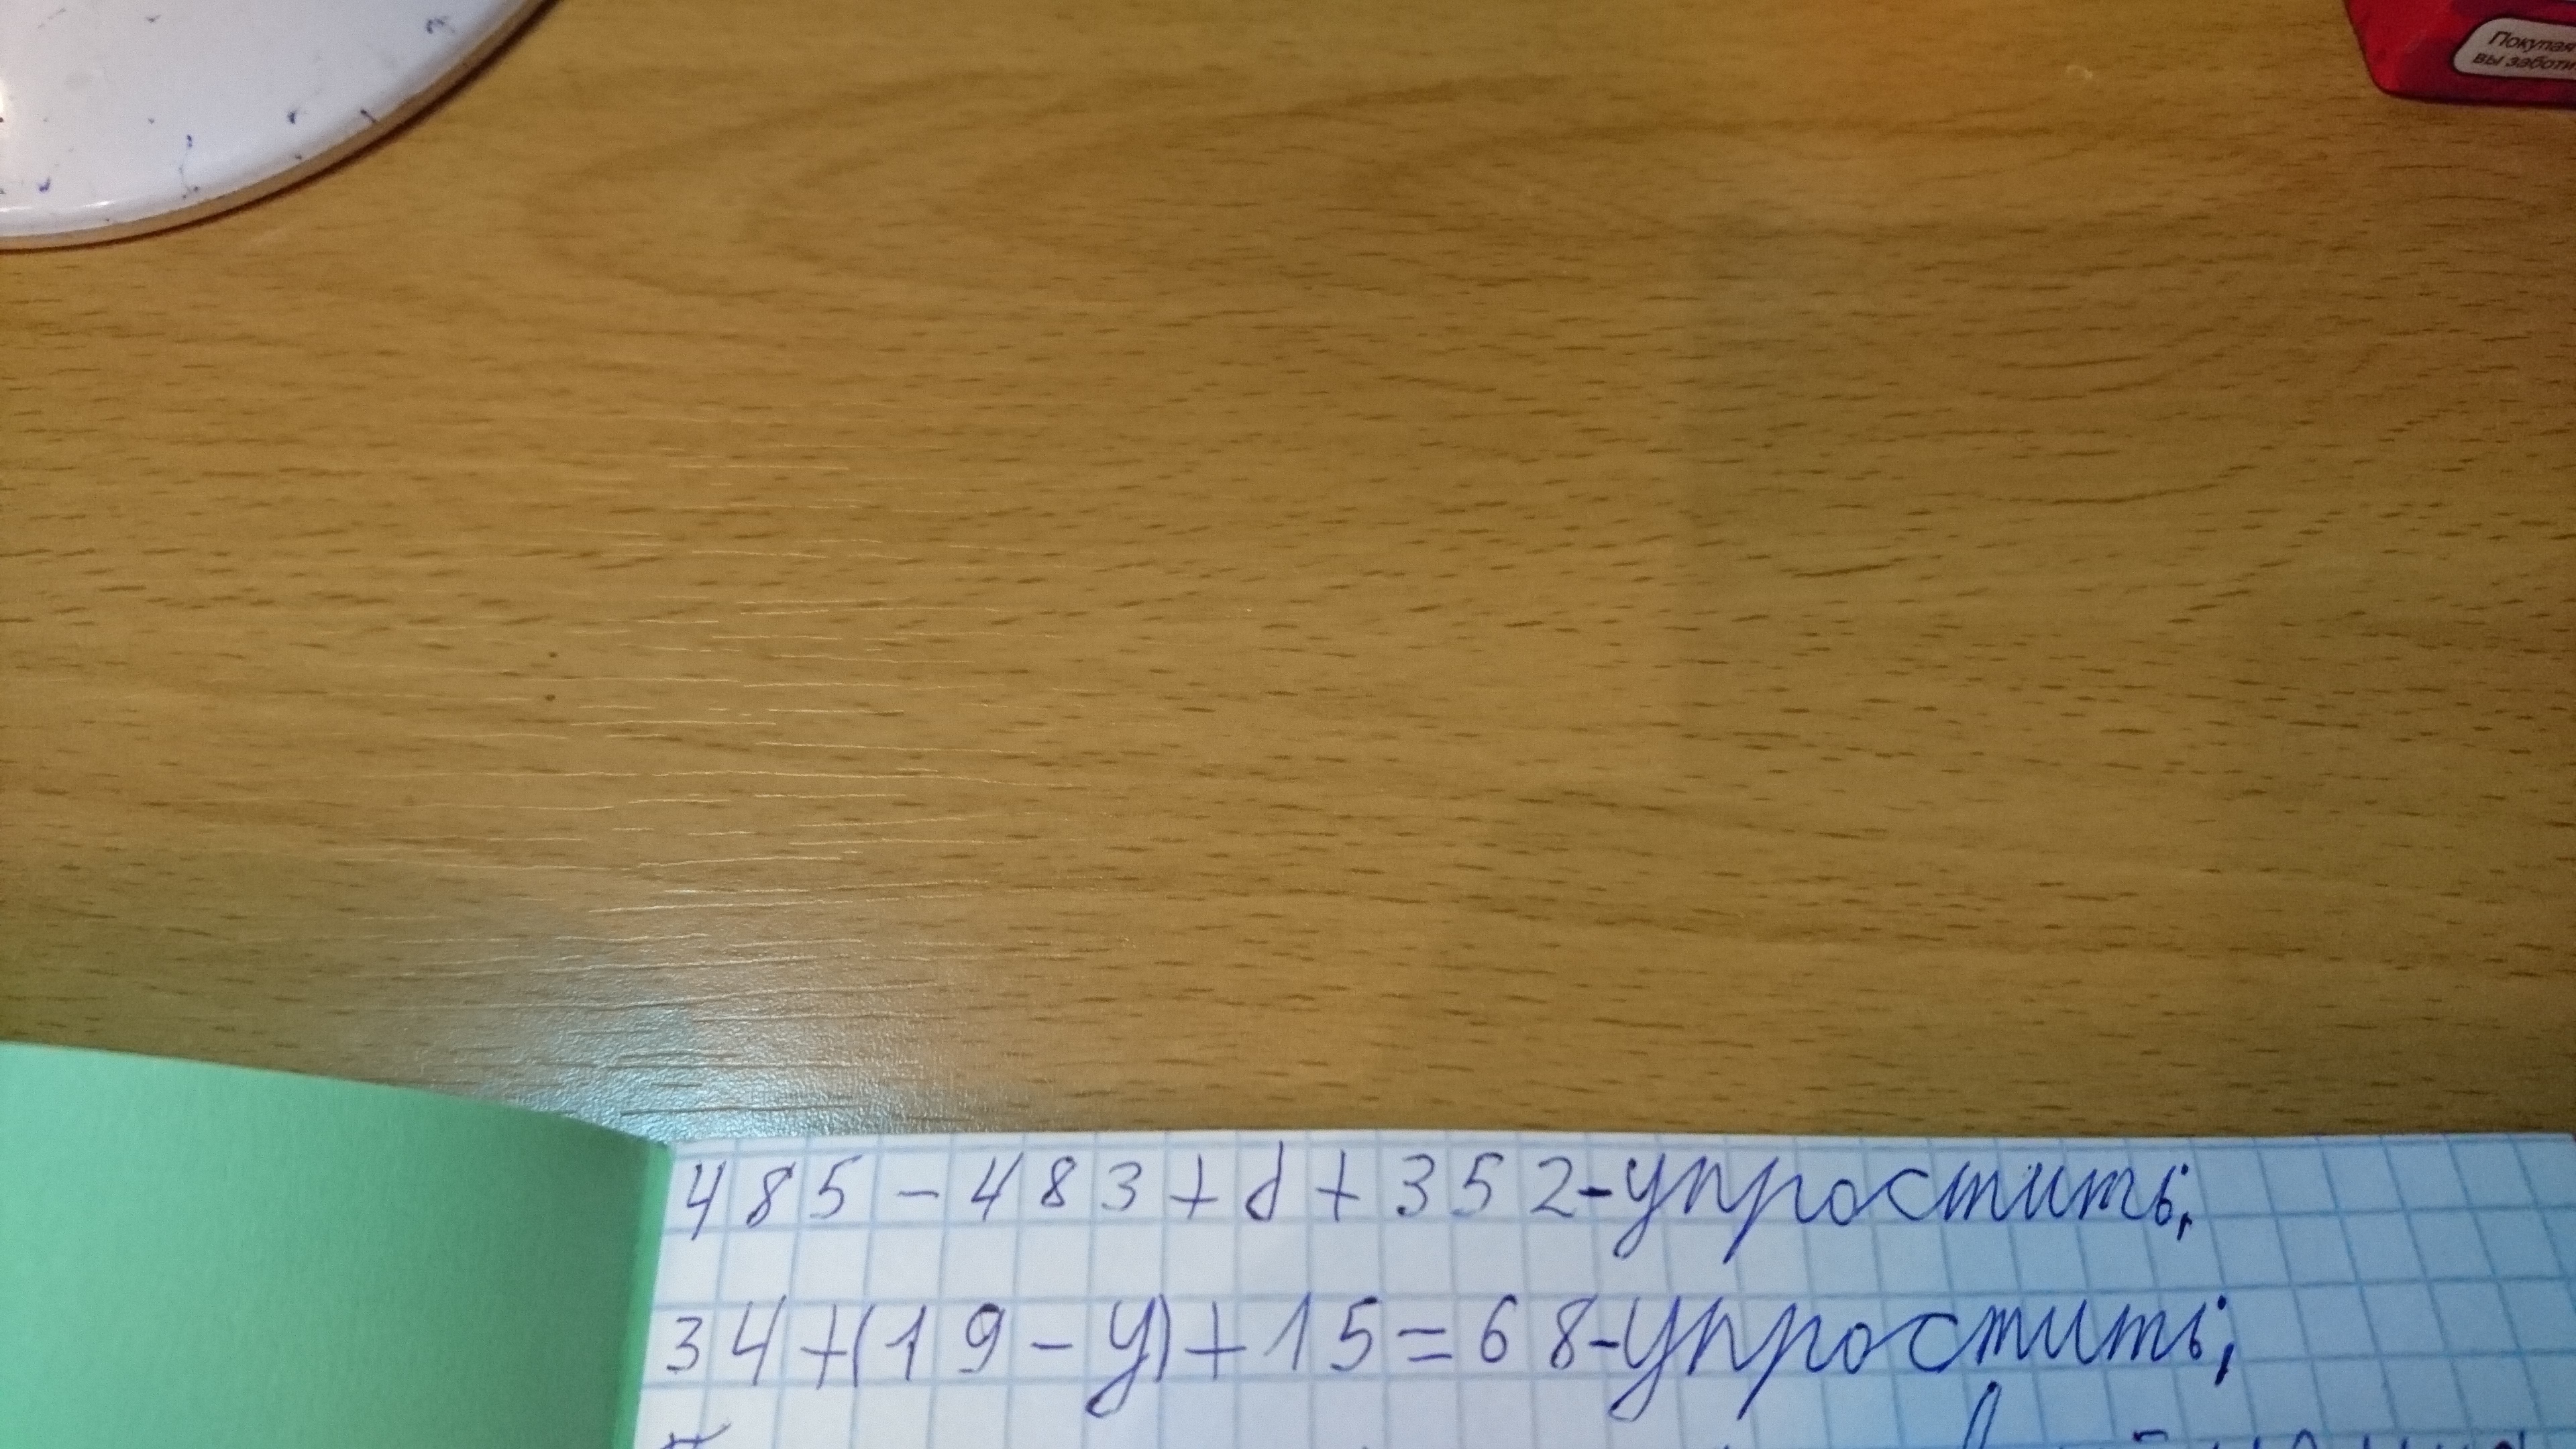 Покупая
вы заботи
485-483+d+352-упростить;
34+(19-y)+15=68-упростить;